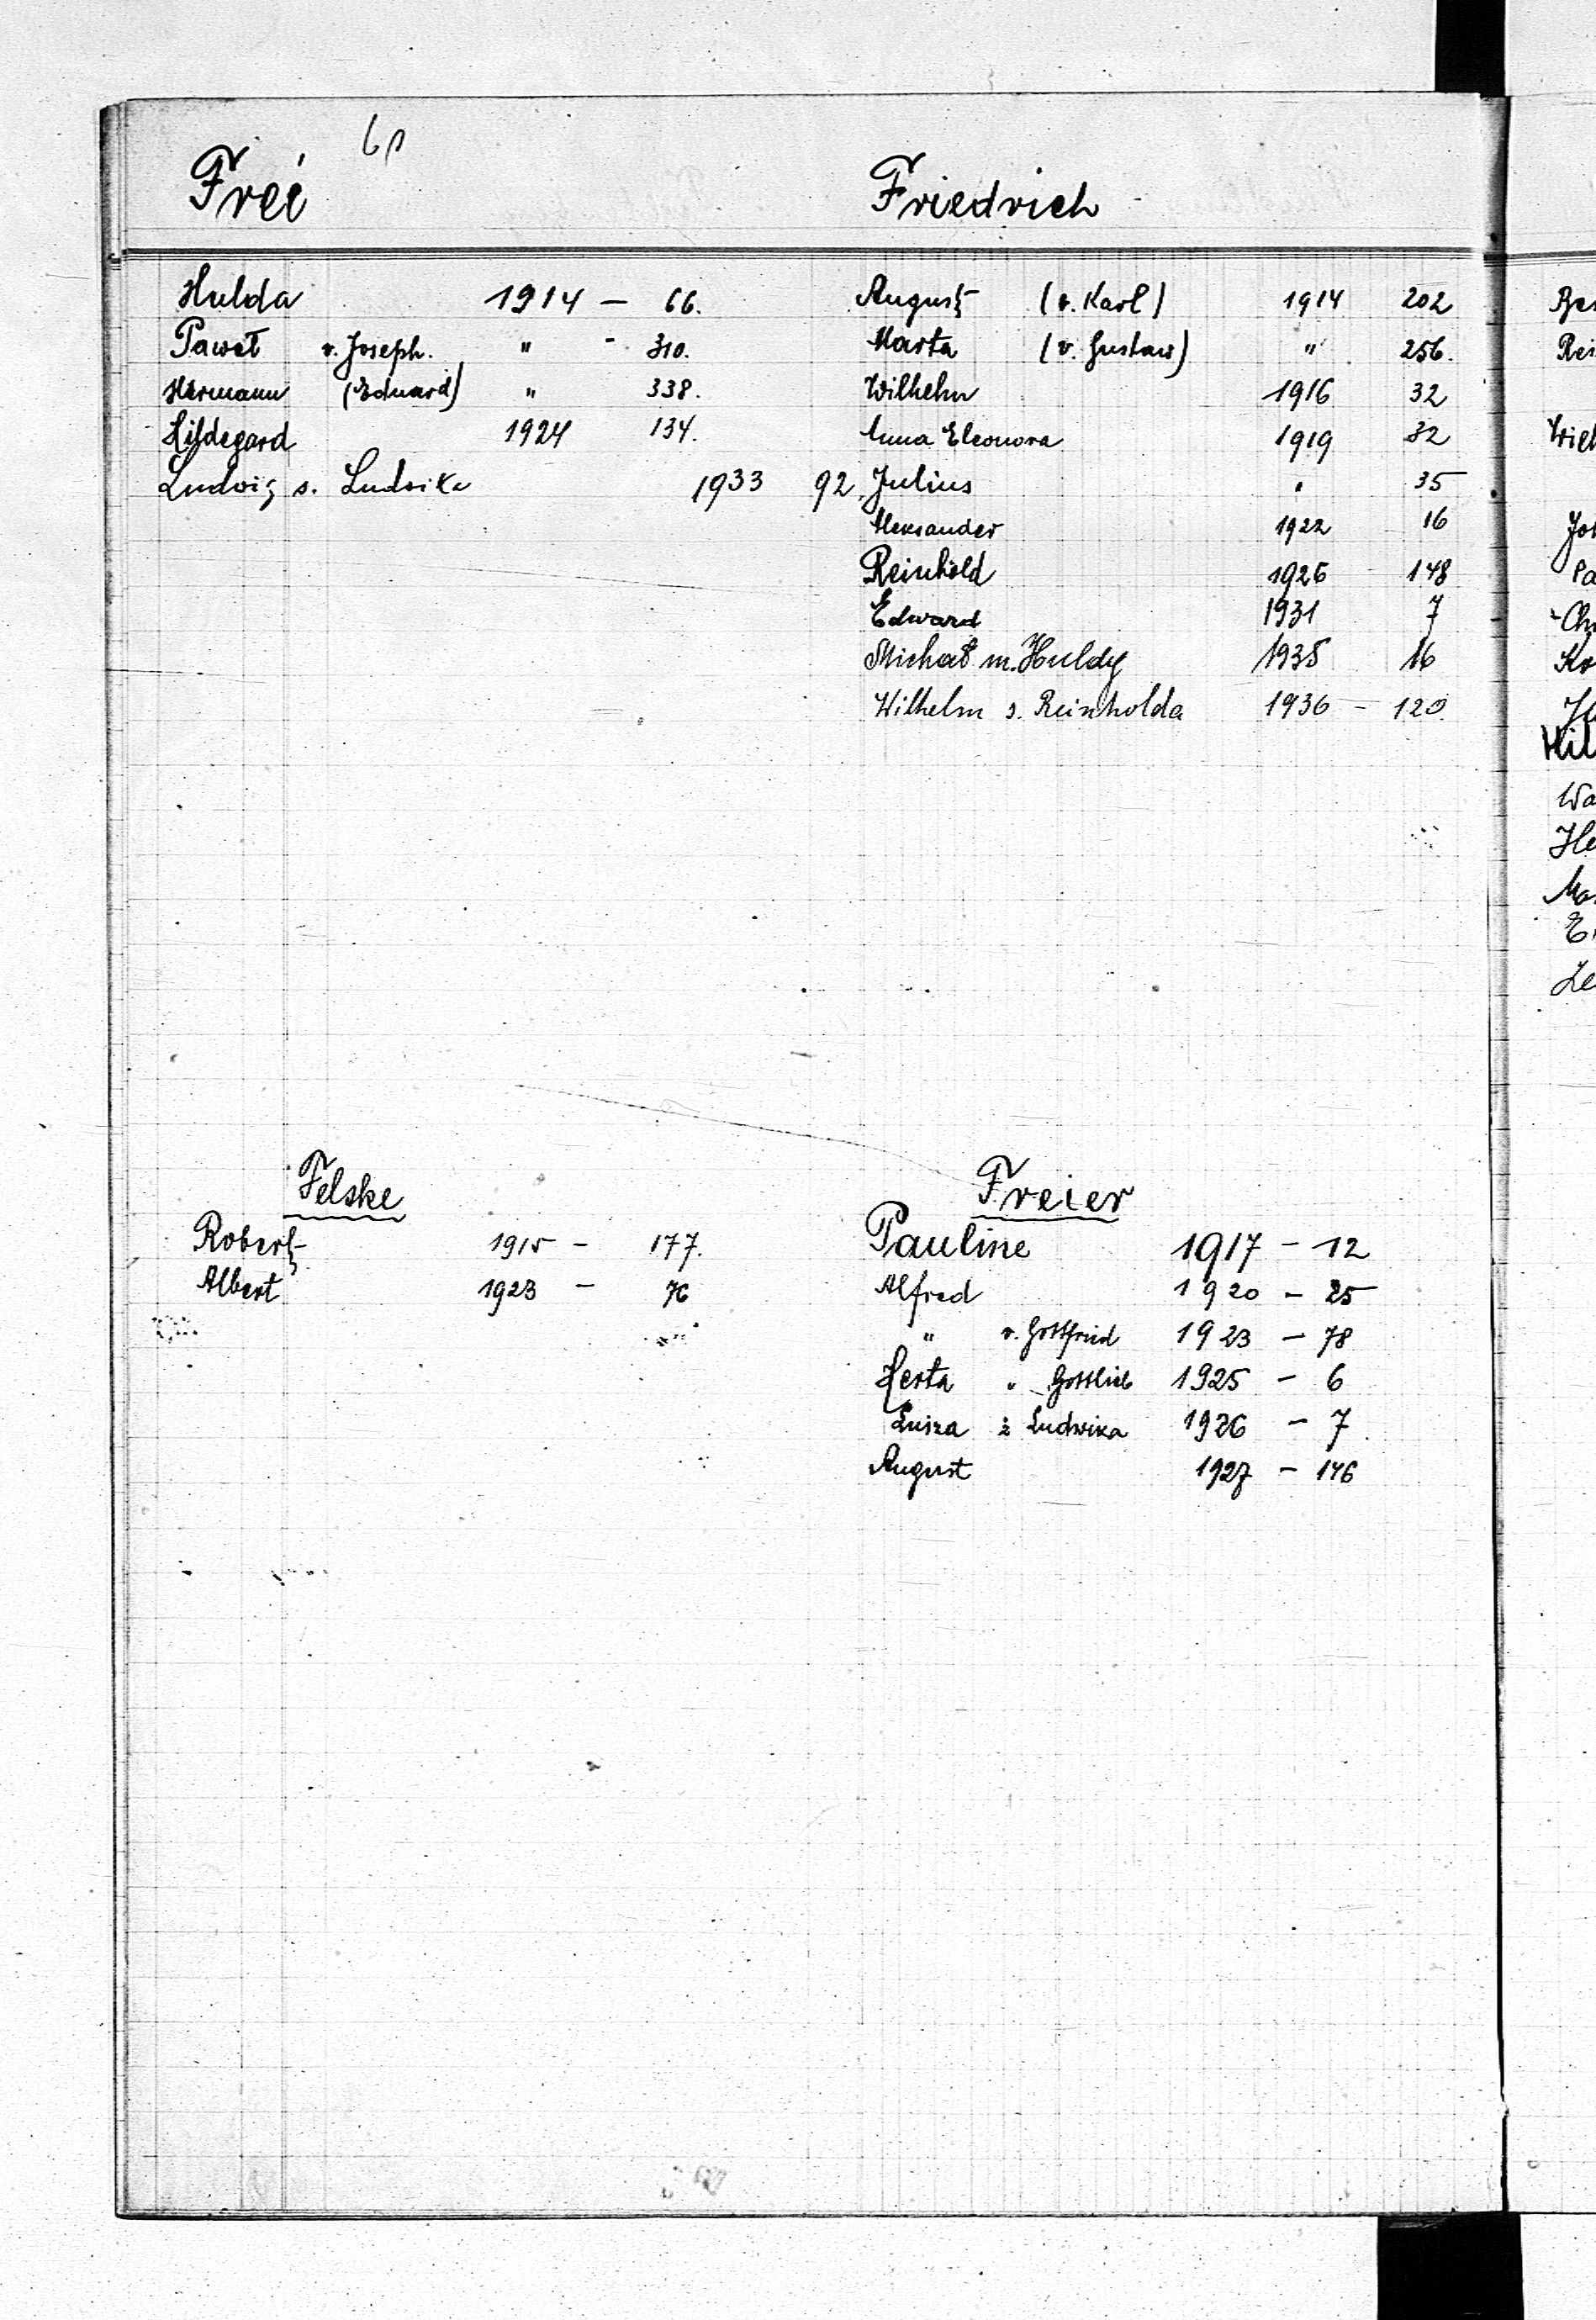 Frei
Hulda 1914 - 66.
Paweł v. Joseph. " - 310.
Hermann (Eduard) " 338.
Hildegard 1924 134.
Ludwig s. Ludwika 1933 92.
Friedrich
August (v. Karl) 1914 202
Marta (v. Gustaw) " 256.
Wilhelm 1916 32
Anna Eleonora 1919 32
Julius " 35
Aleksander 1922 16
Reinhold 1926 148
Edward 1931 7
Michał m. Huldy 1935 16
Wilhelm s. Reinholda 1936 - 120.
Felske
Robert 1915 - 177.
Albert 1923 - 76
Freier
Pauline 1917 - 12
Alfred 1920 - 25
" v. Gottfried 1923 - 78
Herta " Gottlieb 1925 - 6
Luiza ż Ludwika 1926 - 7
August 1927 - 146